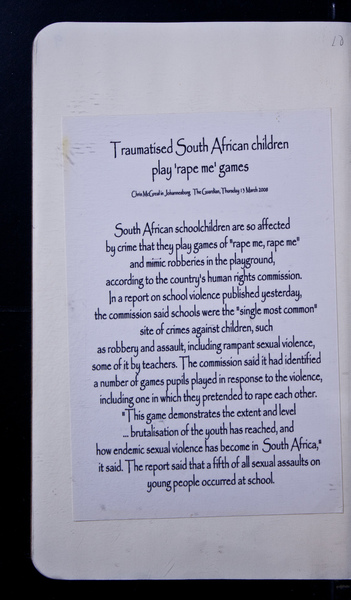 Traumatised South African children
play 'rape me' games
Chris McGreal in Johannesburg The Guardian, Thursday 13 March 2008
South African schoolchildren are so affected
by crime that they play games of "rape me, rape me"
and mimic robberies in the playground,
according to the country's human rights commission.
In a report on school violence published yesterday,
the commission said schools were the "single most common"
site of crimes against children, such
as robbery and assault, including rampant sexual violence,
some of it by teachers. The commission said it had identified
a number of games pupils played in response to the violence,
including one in which they pretended to rape each other.
"This game demonstrates the extent and level
... brutalisation of the youth has reached, and
how endemic sexual violence has become in South Africa,"
it said. The report said that a fifth of all sexual assaults on
young people occurred at school.